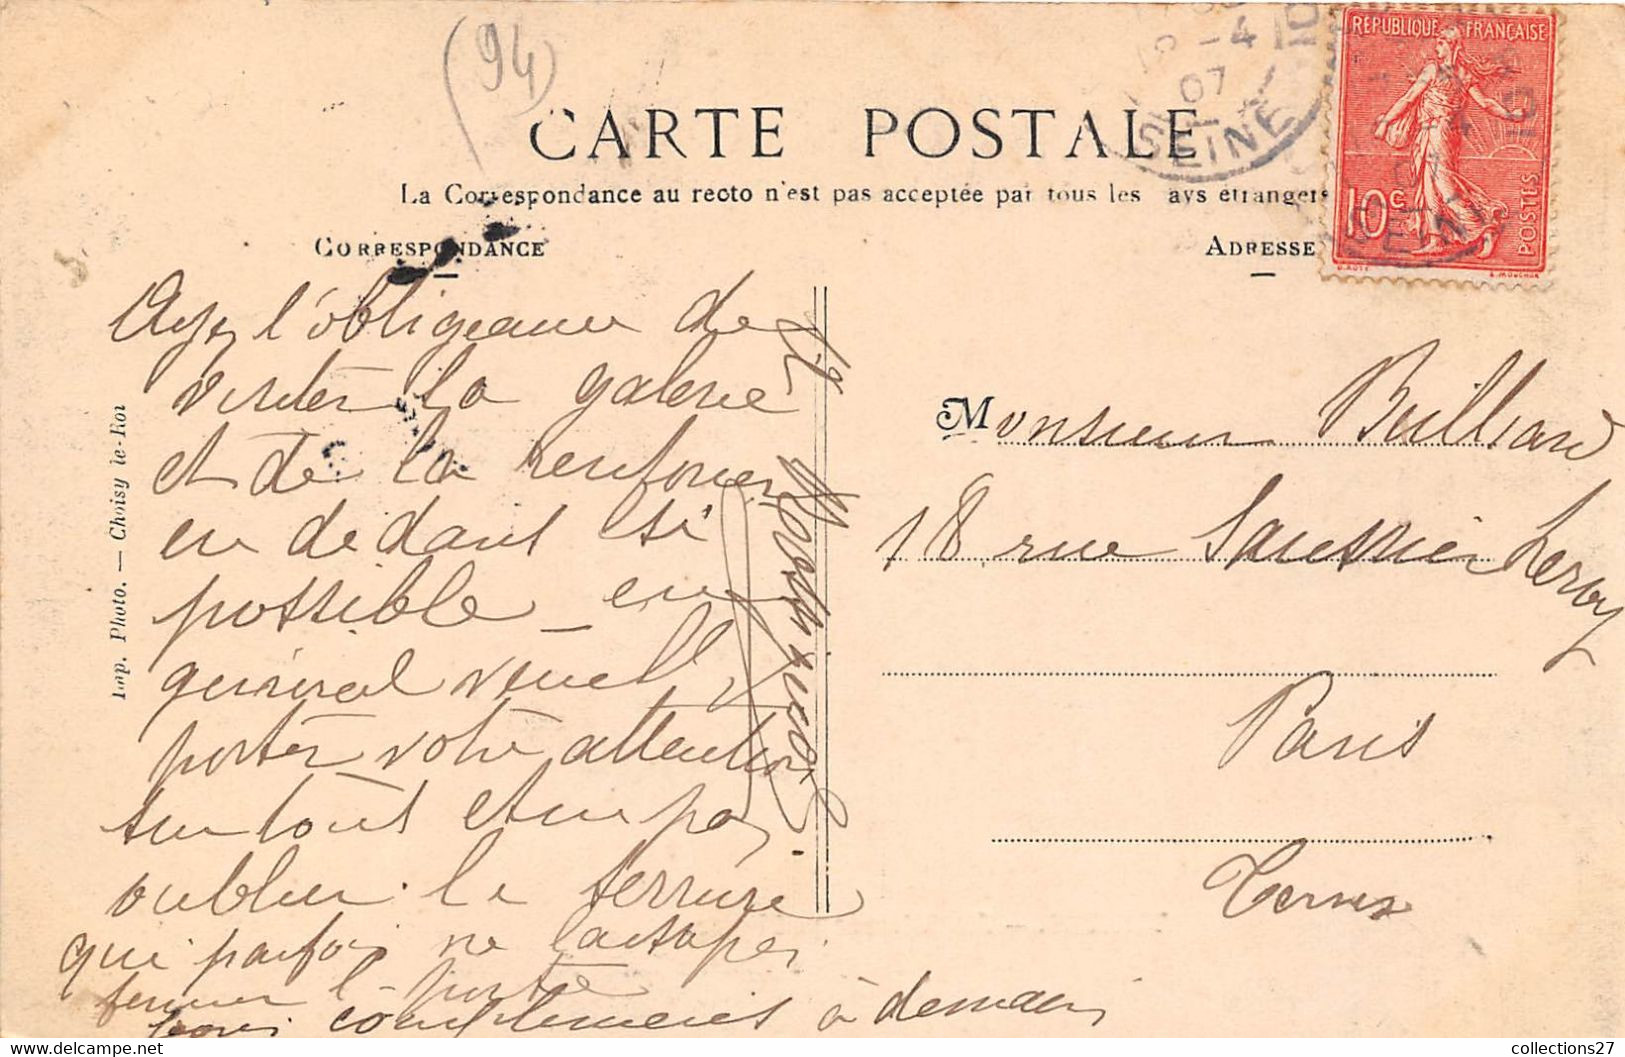 (94)
CARTE POSTALE
La Correspondance au recto n'est pas acceptée par tous les ays étrangers
CORRESPONDANCE
ADRESSE
RÉPUBLIQUE FRANÇAISE
10c
POSTES
O. ROTY
E. MOUCHON
-4
07
SEINE
Imp. Photo. — Choisy-le-Roi
Ayez l'obligeance de
visiter la galerie
et de la renforcer
en dedans si
possible — en
général veuill
porter votre attention
sur tout et en pas
oublier le serrure
qui parfois ne pas
fermer l porte
compliments à demain
Monsieur Billiard
18 rue Saussier Leroy
Paris
Ternes
collections27